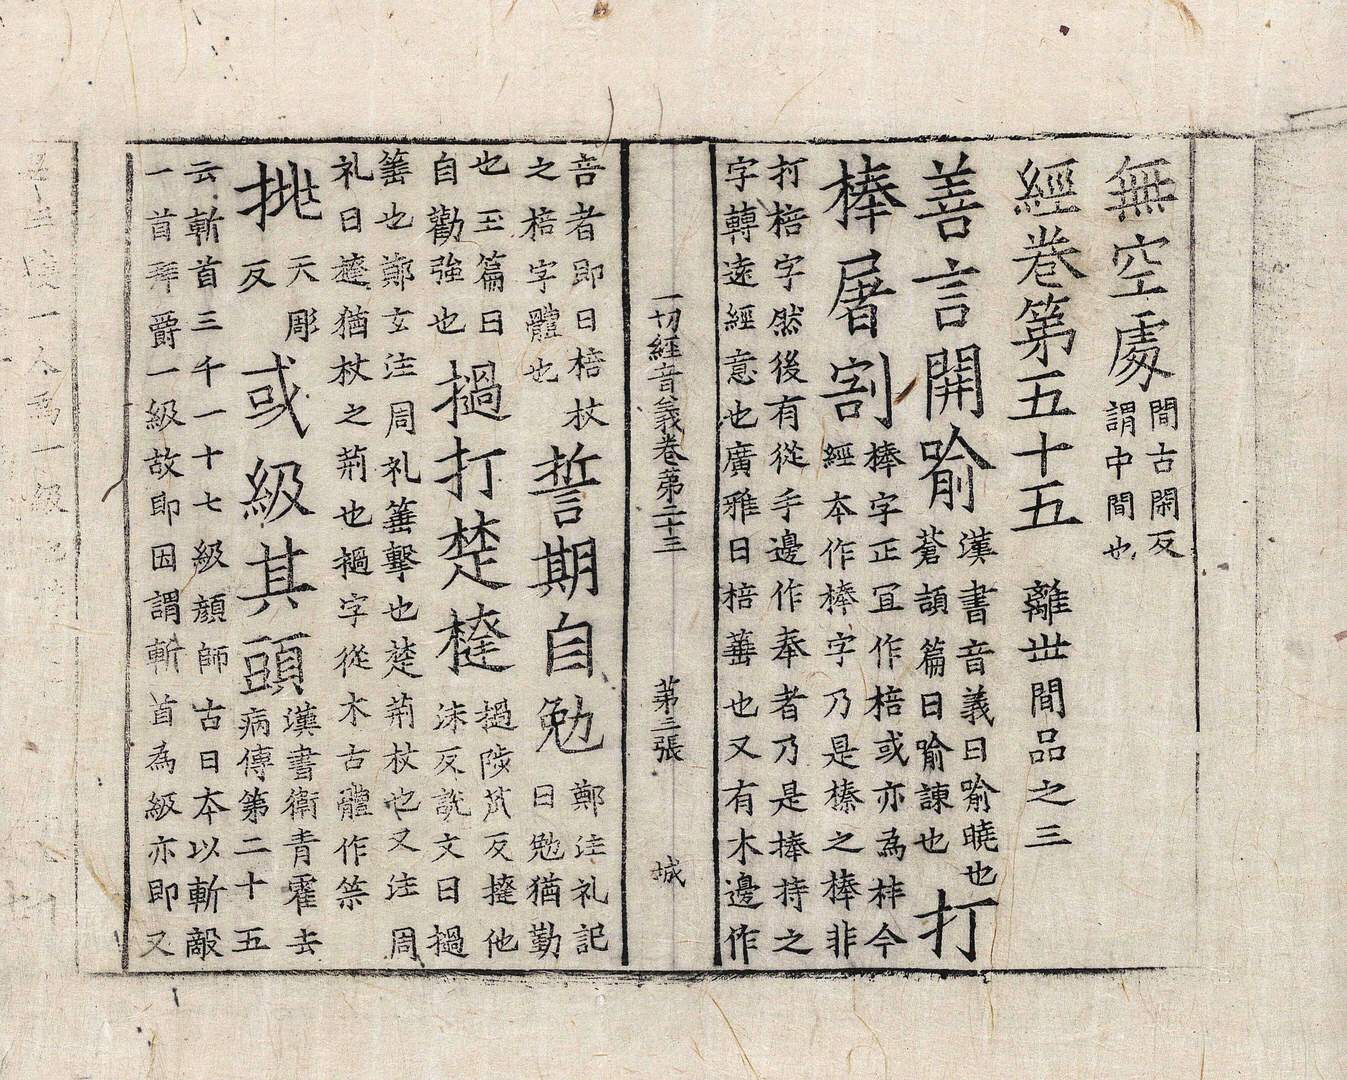 無空處
間古閑反
謂中間也
經卷第五十五 離世間品之三
善言開喻
漢書音義曰喻曉也
蒼頡篇曰喻諫也
打
棒屠割
棒字正冝作棓或亦為柈今
經本作棒字乃是榛之棒非
打棓字然後有從手邊作奉者乃是捧持之
字轉遠經意也廣雅曰棓箠也又有木邊作
一切經音義卷第二十三 第三張 城
咅者即曰棓杖
之棓字體也
誓期自勉
鄭注礼記
曰勉猶勤
也玉篇曰
自勸強也
撾打楚撻
撾陟苽反撻他
沫反說文曰撾
箠也鄭玄注周礼箠擊也楚荊杖也又注周
礼曰撻猶杖之荊也撾字從木古體作
挑
天彫
反
或級其頭
漢書衛青霍去
病傳第二十五
云斬首三千一十七級顏師古曰本以斬敵
一首拜爵一級故即因謂斬首為級亦即又